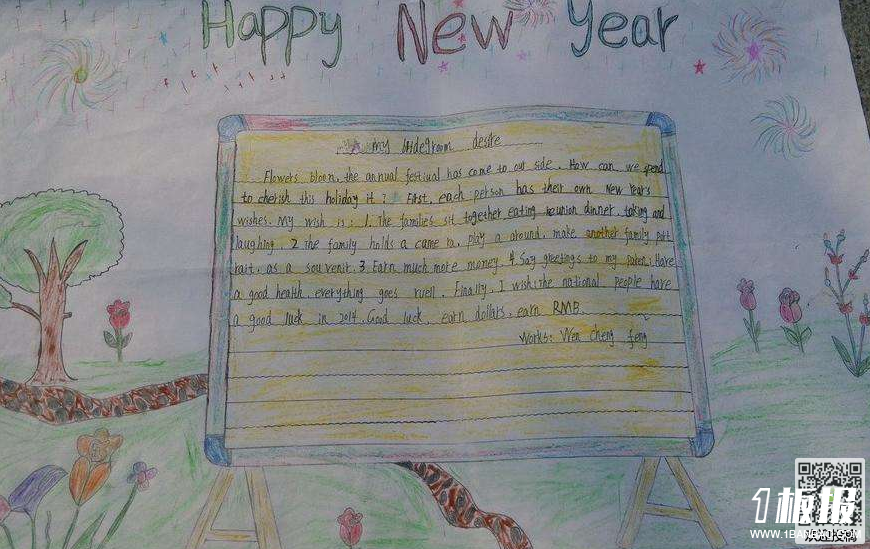 Happy New Year
my desire
Flowers bloon, the annual festival has come to our side. How can we spend
to cherish this holiday it? First, each person has their own New Years
wishes. My wish is: 1. The families sit together eating reunion dinner, taking and
laughing. 2 The family holds a came ra, play a around, make another family port
rait, as a souvenir. 3 Earn much more money. 4 Say greetings to my parents Have
a good health, everything goes ruell. Finally, I wish the national people have
a good luck in 2014. Good luck, earn dollars, earn RMB.
Works: Wen cheng feng
1板报
WWW.1BANBAO.COM
欢迎投稿